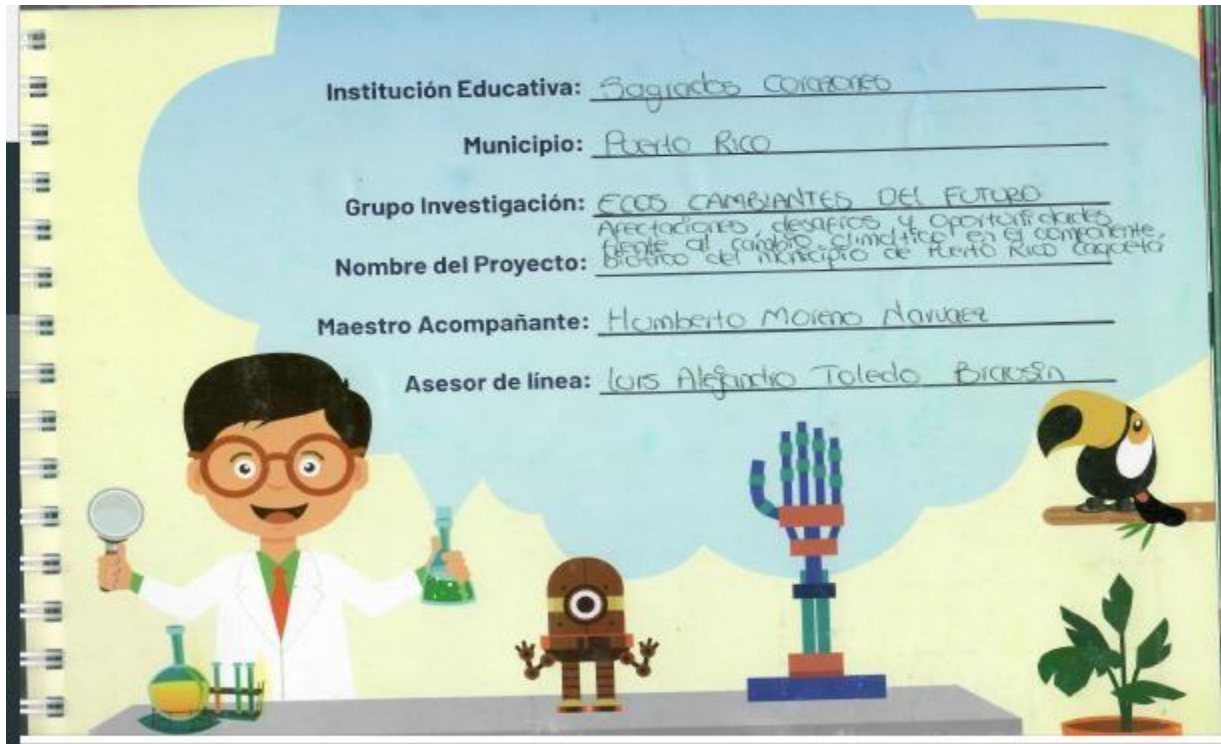 Institución Educativa: Sagrados Corazones
Municipio: Puerto Rico
Grupo Investigación: ECOS CAMBIANTES DEL FUTURO
Afectaciones, desafíos y oportunidades
frente al cambio climático en el componente
Nombre del Proyecto: biótico del municipio de Puerto Rico Caquetá
Maestro Acompañante: Humberto Moreno Narvaez
Asesor de línea: Luis Alejandro Toledo